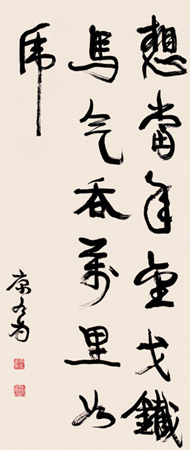 想當年金戈鐵
馬气吞萬里如
虎
康有為